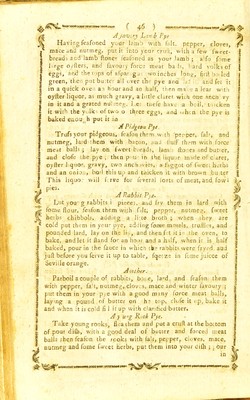 ( 46 )
A savory Lamb Pye
Having seasoned your lamb with salt, pepper, cloves,
mace and nutmeg, put it into your crust, with a few sweet-
breads and lamb stones seasoned as your lamb; also some
large oysters, and savoury force meat balls, hard yolks of
eggs, and the tops of asparagus two inches long, first boiled
green, then put butter all over the pye and lid it and set it
in a quick oven an hour and an half, then make a lear with
oyster liquor, as much gravy, a little claret with one anchovy
in it and a grated nutmeg. Let these have a boil, thicken
it with the yolks of two or three eggs, and when the pye is
baked enough put it in
A Pidgeon Pye.
Truss your pidgeons, season them with pepper, salt, and
nutmeg, lard them with bacon, and stuff them with force
meat balls; lay on sweet breads, lamb stones and butter,
and close the pye; then pour in the liquor made of claret,
oyster liquor, gravy, two anchovies, a faggot of sweet herbs
and an onion, boil this up and thicken it with brown butter
This liquor will serve for several sorts of meat, and fowl
pies.
A Rabbit Pye.
Cut young rabbits in pieces, and fry them in lard with
some flour, season them with salt, pepper, nutmeg, sweet
herbs shibbols, adding a little broth; when they are
cold put them in your pye, adding some morels, truffles, and
pounded lard, lay on the lid, and then set it in the oven, to
bake, and let it stand for an hour and a half, when it is half
baked, pour in the sauce in which the rabbits were fryed and
just before you serve it up to table, squeeze in some juice of
Seville orange.
Another.
Parboil a couple of rabbits, bone, lard, and season them
with pepper, salt, nutmeg, cloves, mace and winter savoury;
put them in your pye with a good many force meat balls,
laying a pound of butter on the top, close it up, bake it
and when it is cold fill it up with clarified butter.
A young Rook Pye.
Take young rooks, flea them and put a crust at the bottom
of your dish, with a good deal of butter and forced meat
balls then season the rooks with salt, pepper, cloves, mace,
nutmeg and some sweet herbs, put them into your dish; put
in